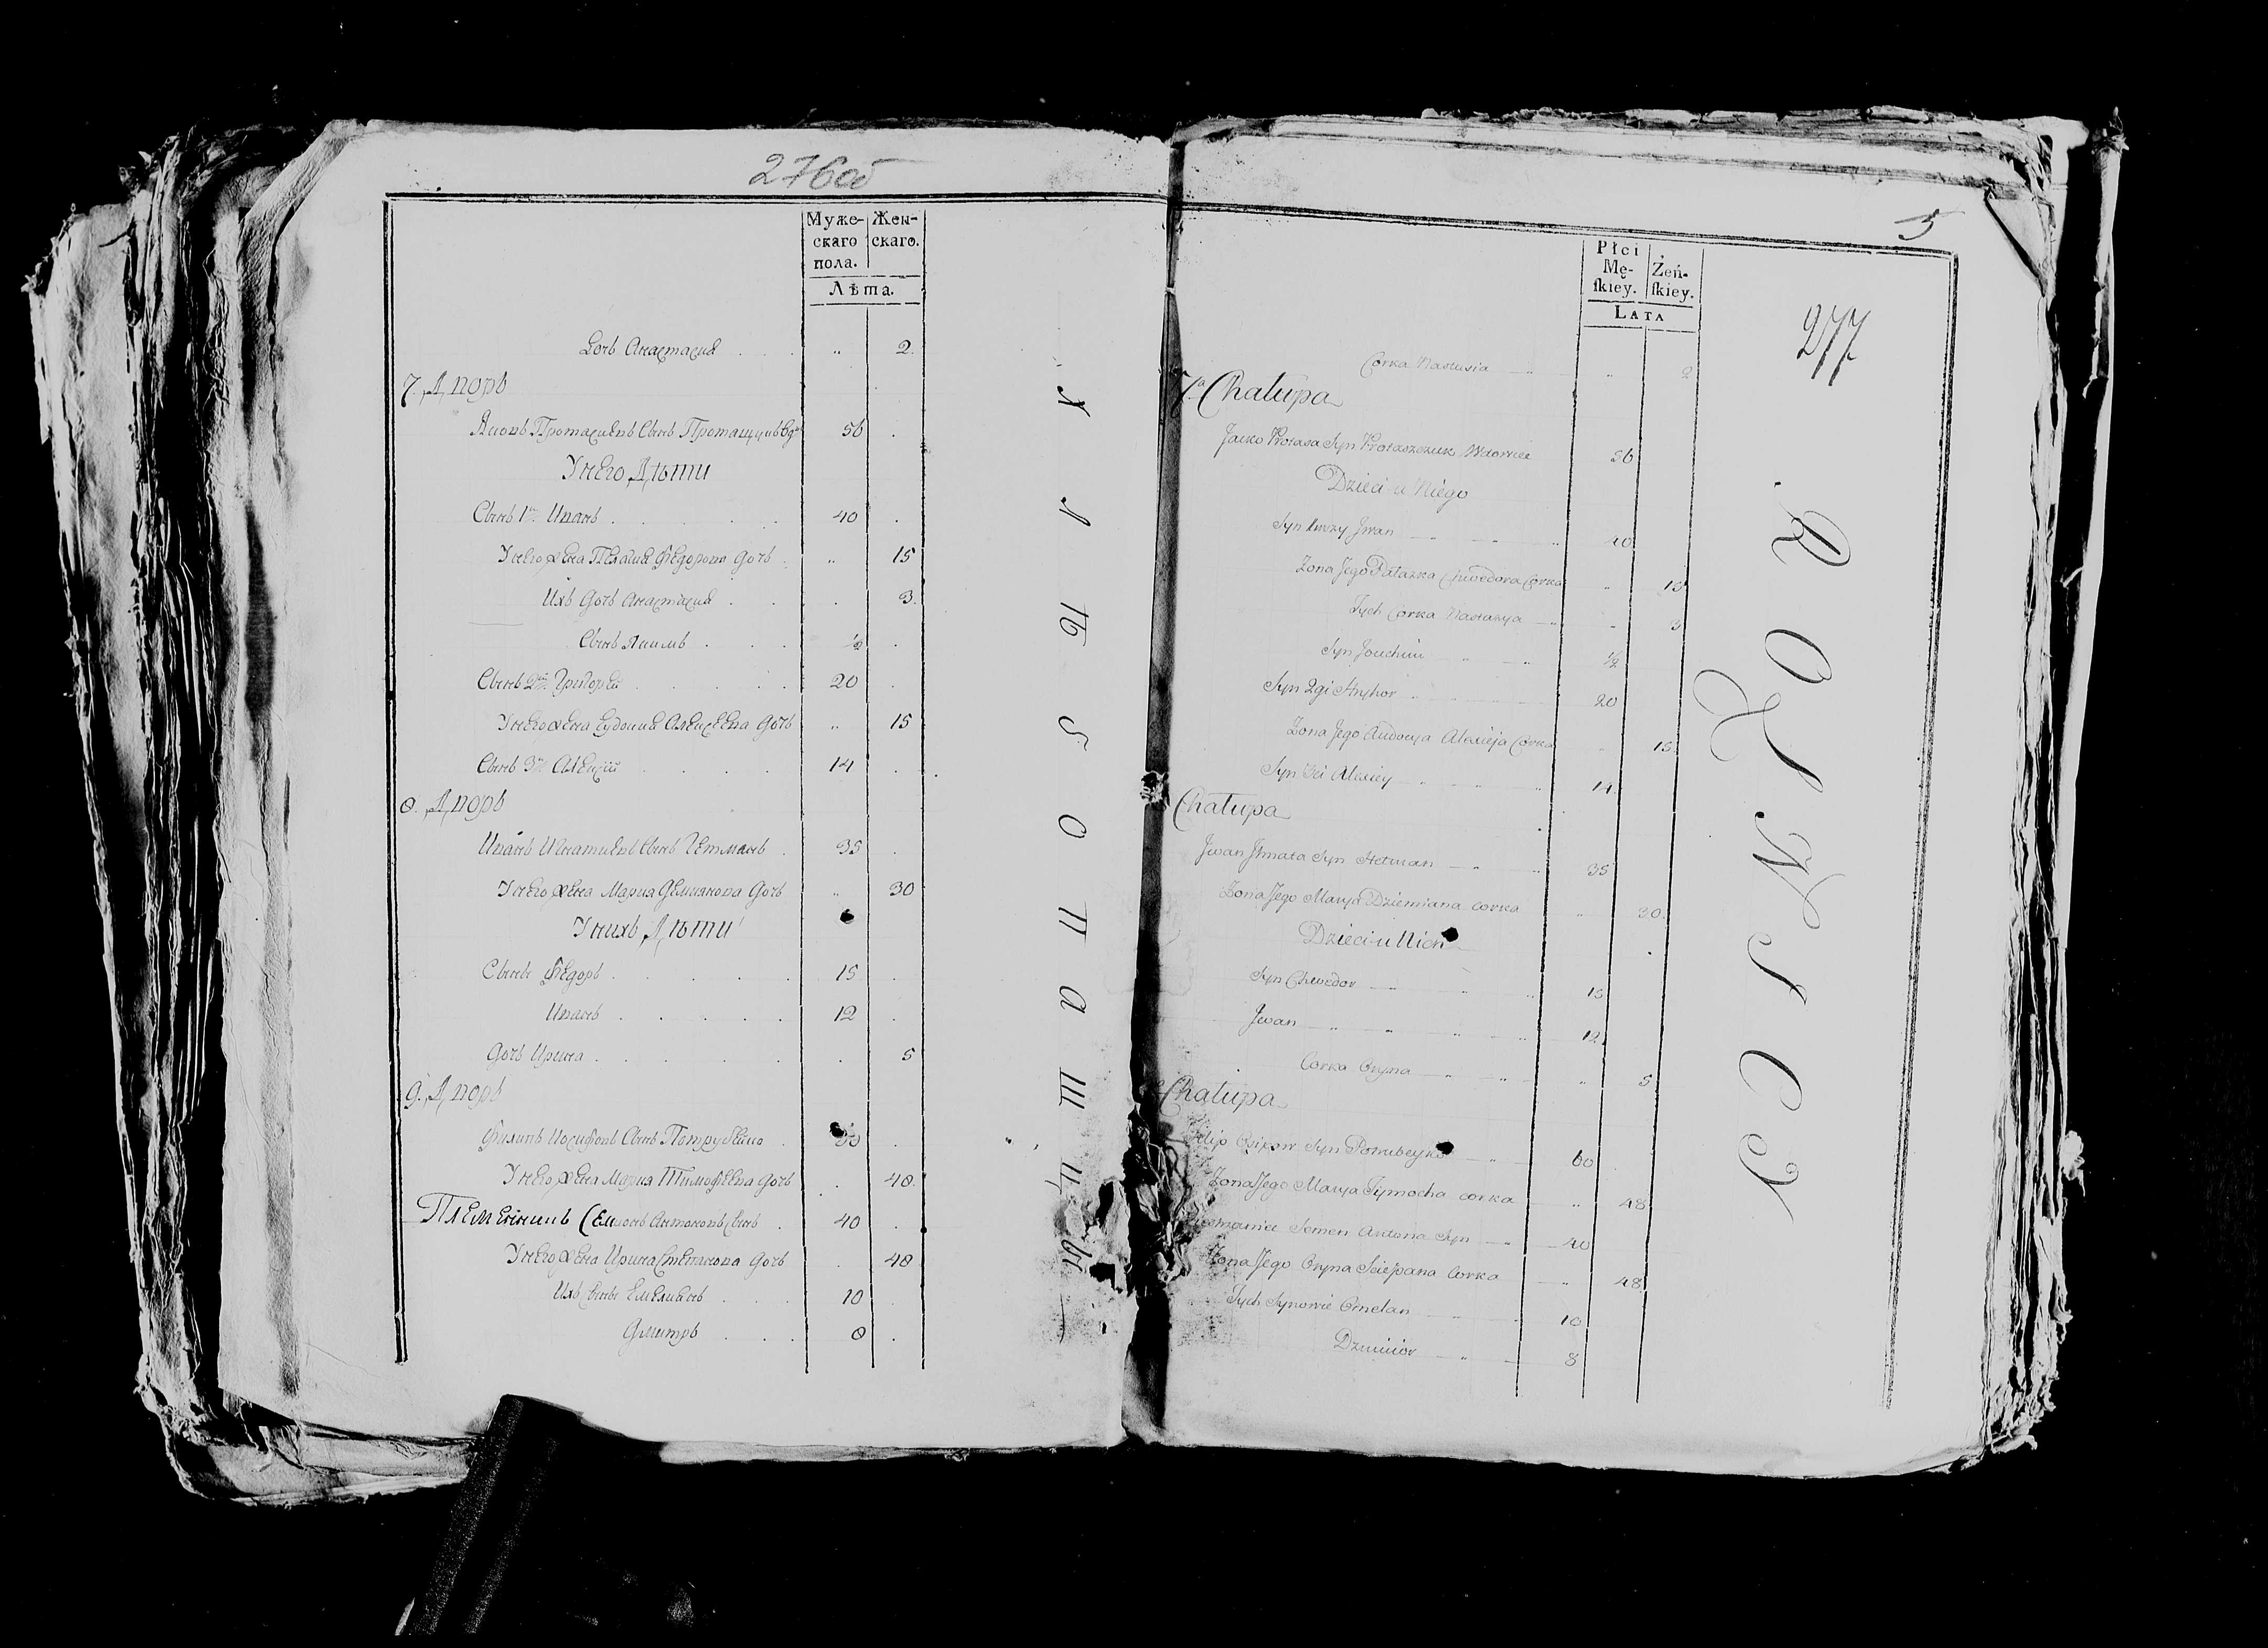 276об
Муже-
скаго
пола.
Жен-
скаго.
Лѣта.
Дочь Анастасия .. 2
7. Дворъ
Яковъ Протасиевъ Сынъ Протащукъ Вд: 56
У него Дѣти
Сынъ 1й Иванъ 40
У него жена Пелагия Федорова дочь .. 15
Ихъ дочь Анастасия 3
Сынъ Якимъ ½
Сынъ 2й Григорей 20
У него жена Еудокия Алексеева дочь .. 15
Сынъ 3й Алексѣй 14
8. Дворъ
Иванъ Игнатиевъ Сынъ Гетманъ 35
У него жена Мария Демиянова дочь .. 30
У нихъ Дѣти
Сыны Федоръ 15
Иванъ 12
Дочь Ирина 5
9. Дворъ
Филипъ Иосифовъ Сынъ Потрубейко 60
У него жена Мария Тимофеева дочь 48
Племенникъ Семионъ Антоновъ Сынъ 40
У него жена Ирина Степанова дочь 48
Ихъ Сыны Емелианъ 10
Дмитръ 8
5
277
Płci
Mę-
ſkiey.
Żeń-
ſkiey.
LATA
Corka Nastusia 2
7a Chałupa
Jacko Protasa Syn Protaszczuk Wdowiec 56
Dzieci u Niego
Syn 1wszy Jwan 40
Zona Jego Pałazka Chwedora Corka 15
Jych Corka Nastazya 3
Syn Jouchim ½
Syn 2gi Hryhor 20
Zona Jego Audocya Alexieja Corka 15
Syn 3ci Alexiey 14
Chałupa
Jwan Jhnata Syn Hetman 35
Zona Jego Marya Dziemiana corka 30
Dzieci u Nich
Syn Chwedor 15
Jwan 12
Corka Oryna 5
Chałupa
Filip Osipow Syn Potrubeyko 60
Zona Jego Marya Tymocha corka 48
Semen Antona Syn 40
Zona Jego Oryna Sciepana Corka 48
Jych Synowie Omelan 10
8